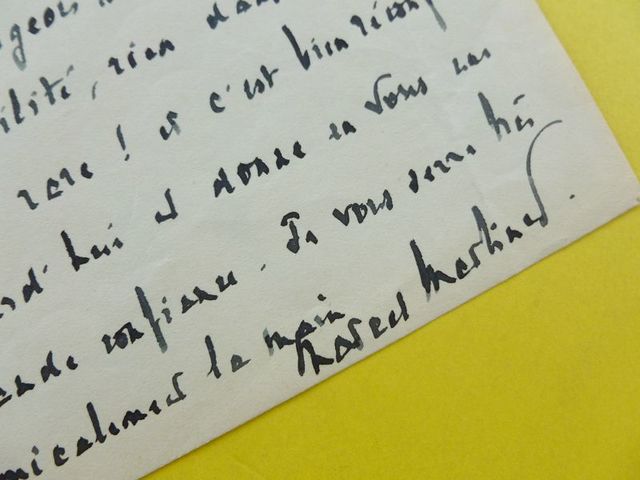 rgeois
ilité, rien dans
rare ! et c'est bien réconf
rd'hui et donne en vous une
ande confiance. Je vous serre très
micalement la main
Marcel Martinet.